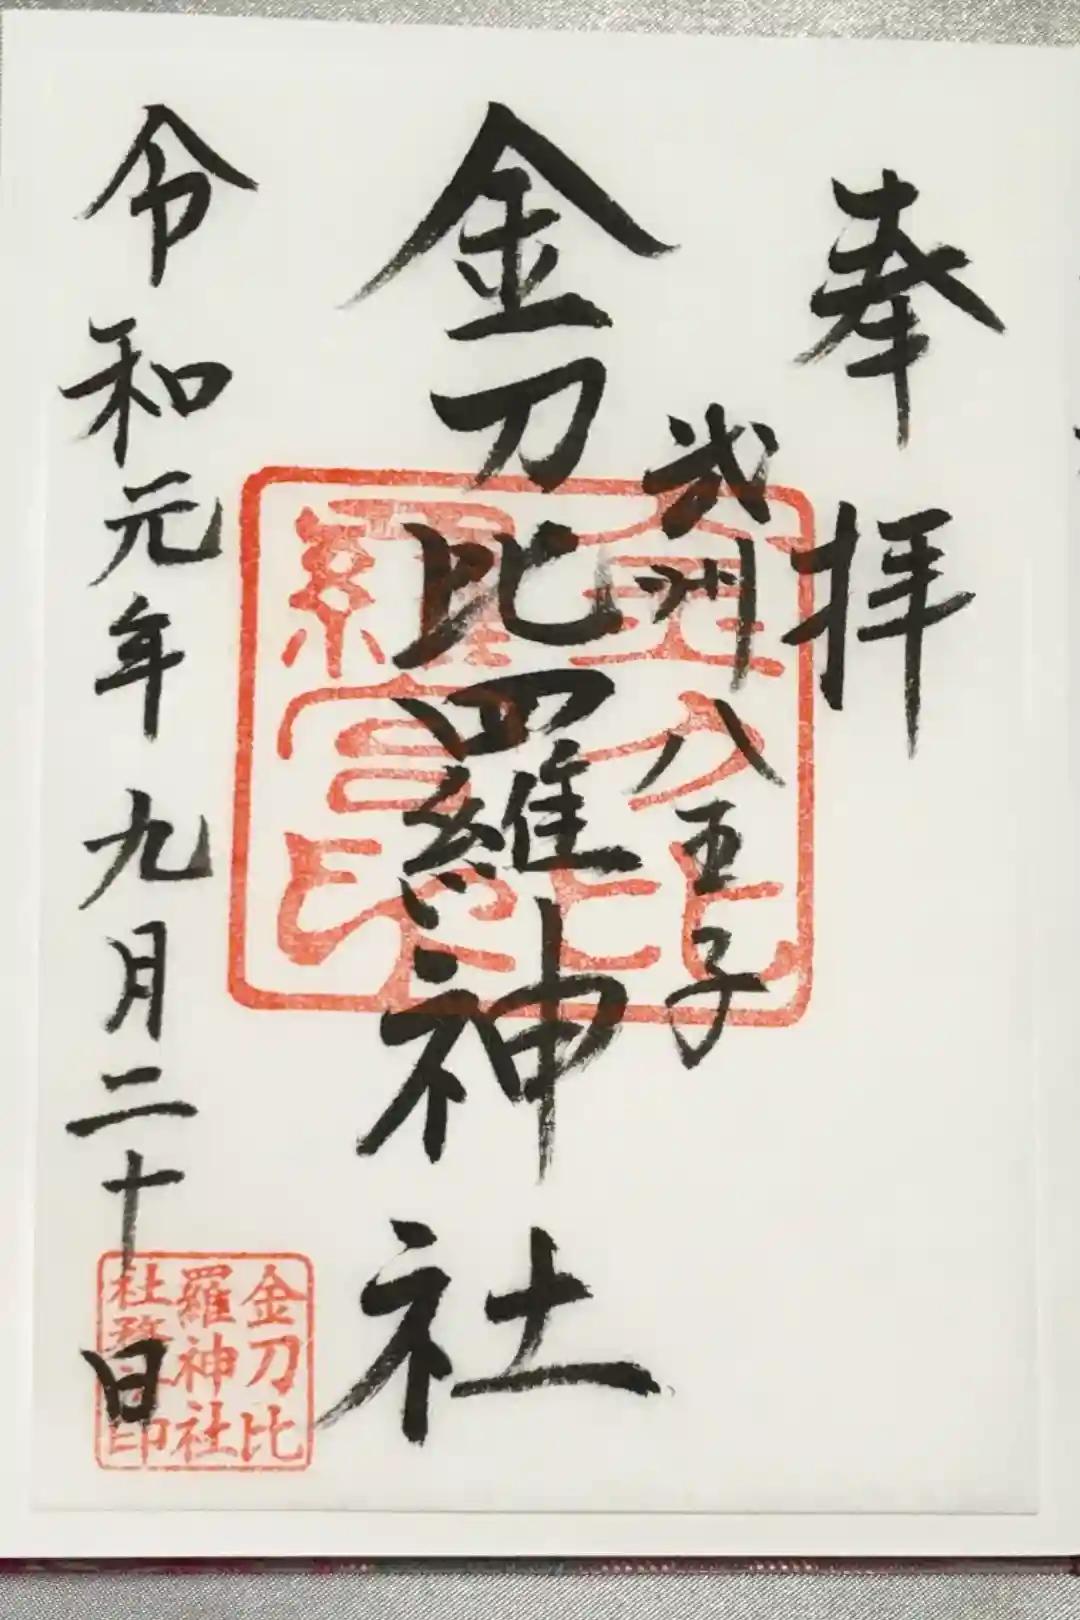 奉拝
武州八王子
金刀比羅神社
令和元年九月二十日
金刀比
羅宮印
金刀比
羅神社
社務所印